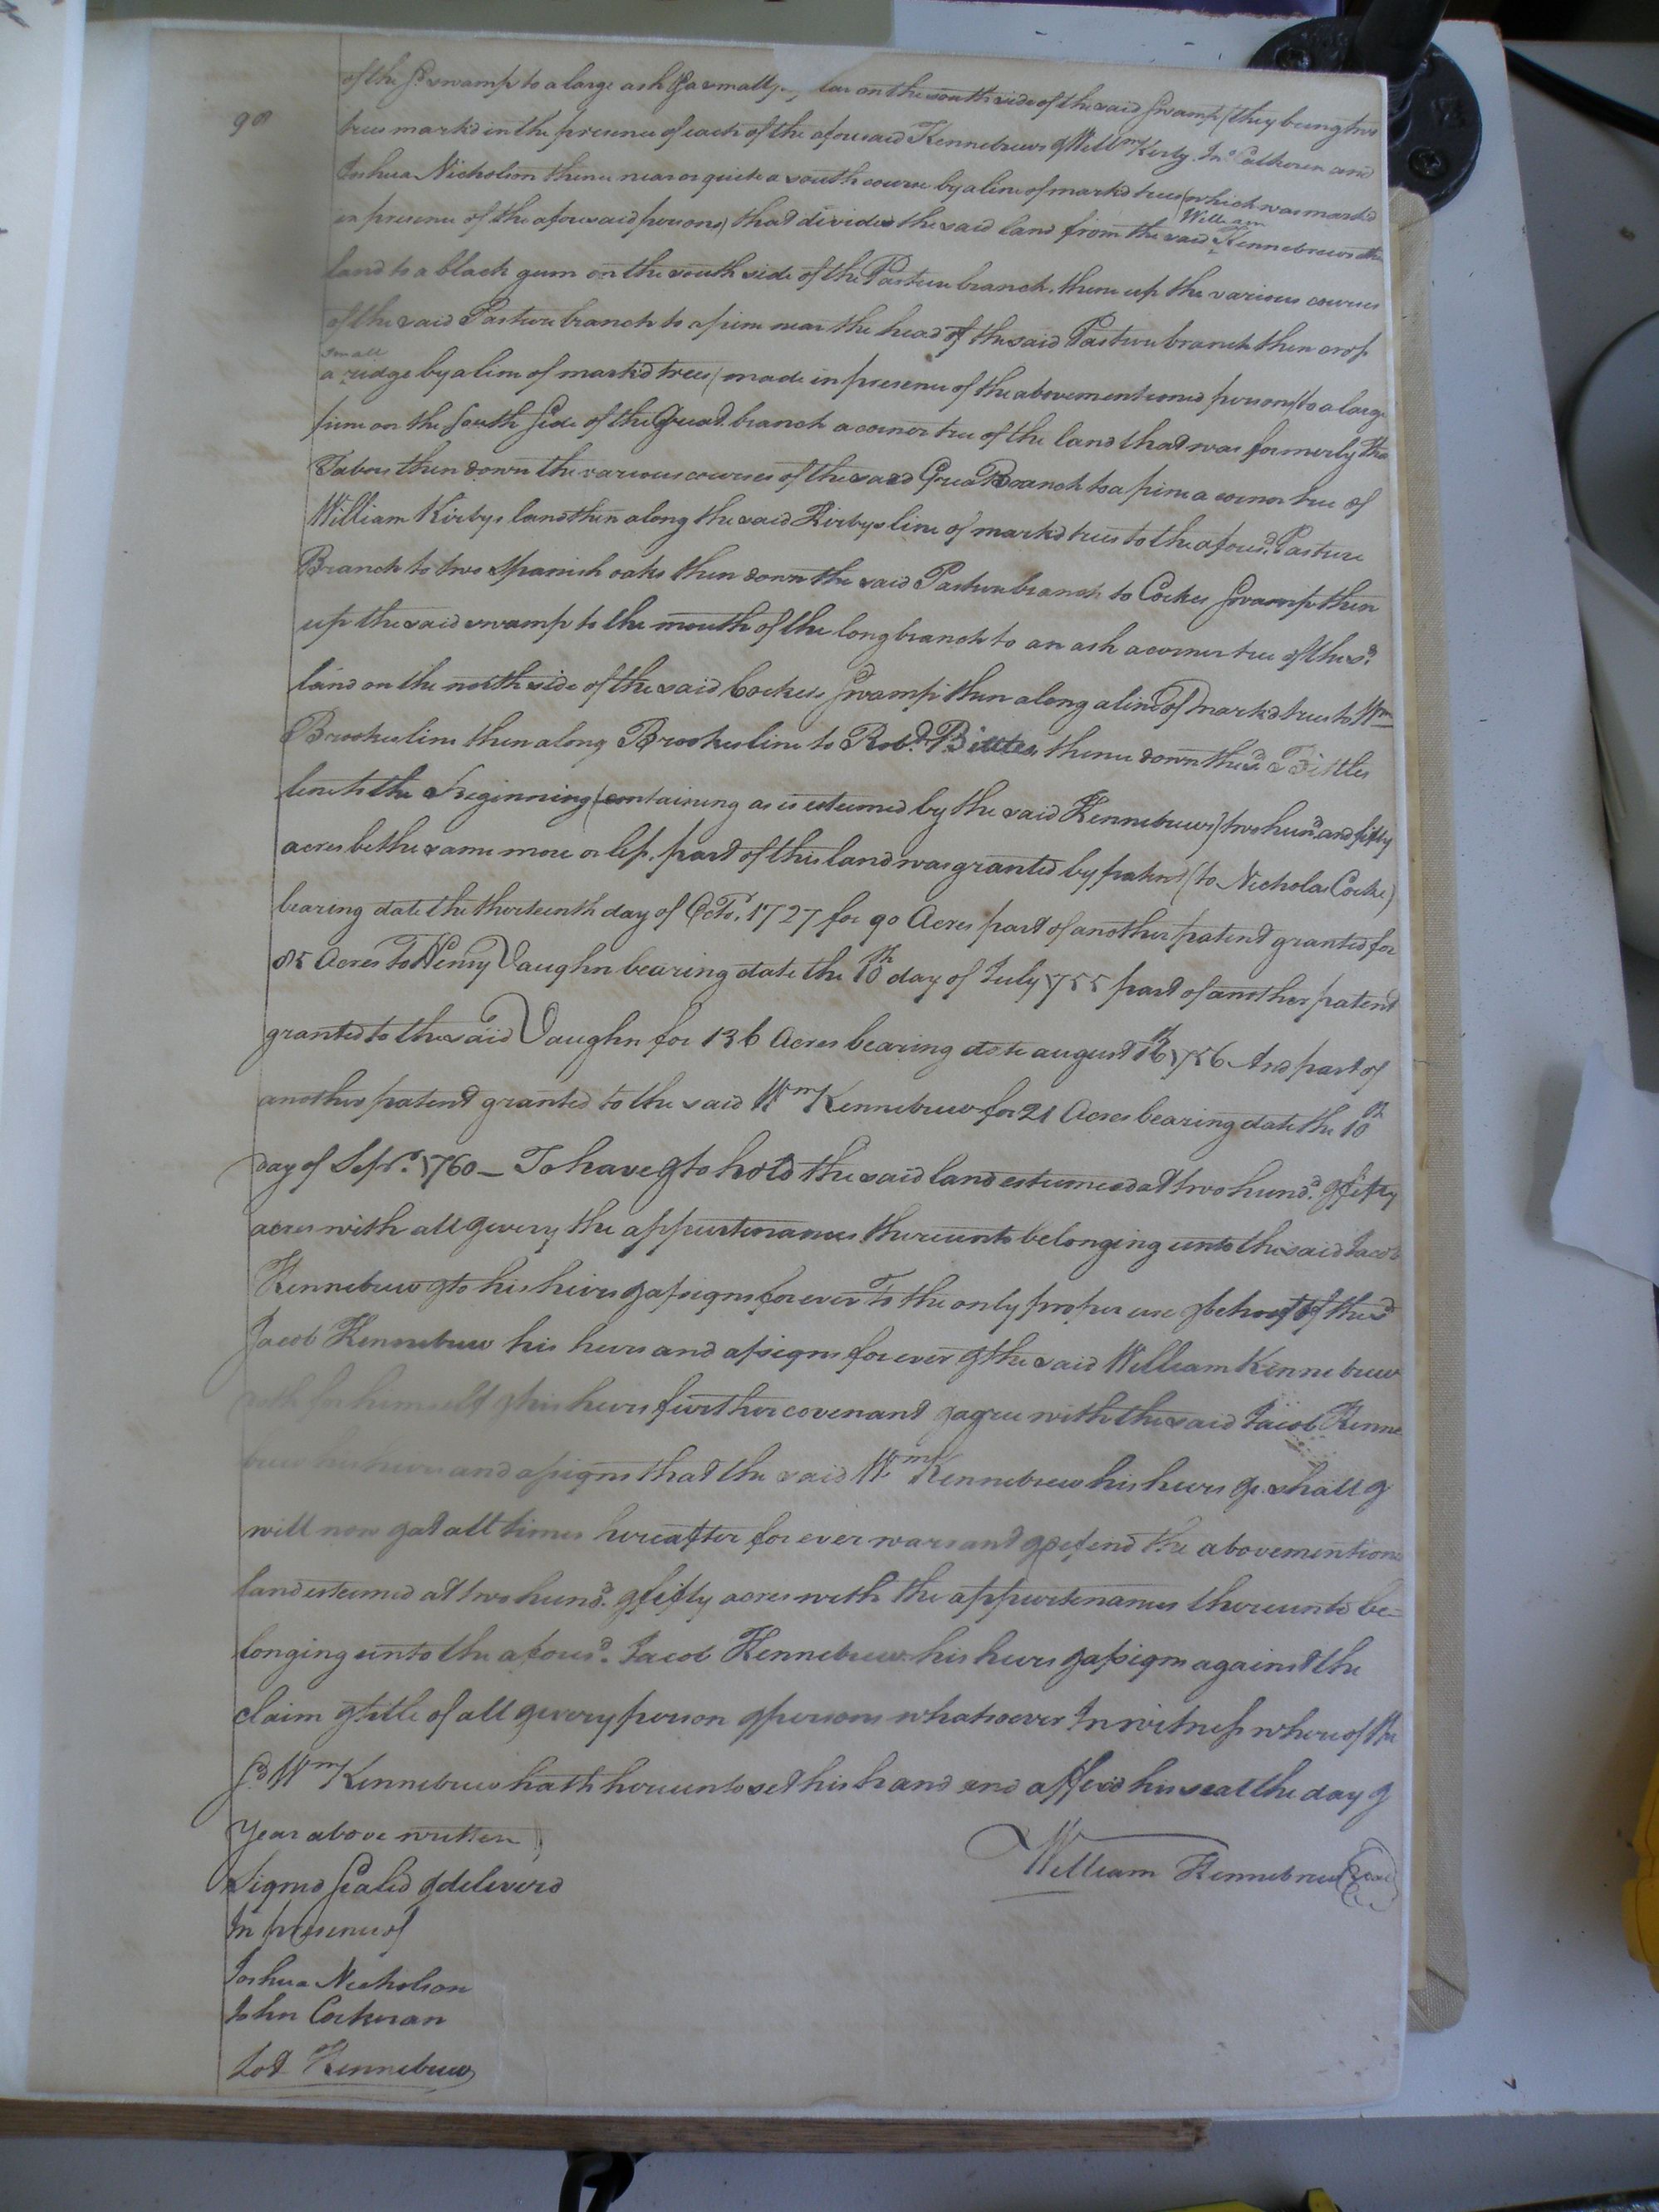 98
of the sd. swamp to a large ash & a small lar on the south side of the said swamp (they being two
trees markd in the presence of each of the aforesaid Kennebrews & Willm Kirby Jno. and
Joshua Nicholson thence near or quite a south course by a line of markd trees (which was markd
in presence of the aforesaid persons) that divides the said land from the said William Kennebrews
land to a black gum on the south side of the Pasture branch, thence up the various courses
of the said Pasture branch to a pine near the head of the said Pasture branch then cross
a small ridge by a line of markd trees (made in presence of the abovementioned persons) to a large
pine on the south side of the Great branch a corner tree of the land that was formerly
Tabors then down the various courses of the said Great Branch to a pine a corner tree of
William Kirbys land then along the said Kirbys line of markd trees to the aforesd. Pasture
Branch to two Spanish oaks then down the said Pasture branch to Cockes swamp then
up the said swamp to the mouth of the long branch to an ash a corner tree of the sd.
land on the north side of the said Cockes swamp then along a line of markd trees to Wm
Brookes line then along Brookes line to Robd. Bittles thence down the sd. Bittles
line to the Beginning (containing as is esteemed by the said Kennebrews) two hund. and fifty
acres be the same more or less. part of this land was granted by patent (to Nicholas Cocke)
bearing date the thirteenth day of Octo. 1727 for 90 Acres part of another patent granted for
85 Acres To Henry Vaughn bearing date the 10th day of July 1755 part of another patent
granted to the said Vaughn for 136 Acres bearing date august 16th 1756 And part of
another patent granted to the said Wm Kennebrew for 21 Acres bearing date the 10th
day of Sepr. 1760 — To have & to hold the said land esteemed at two hund. & fifty
acres with all & every the appurtenances thereunto belonging unto the said Jacob
Kennebrew & to his heirs & assigns for ever To the only proper use & behoof of the sd
Jacob Kennebrew his heirs and assigns for ever & the said William Kennebrew
doth for himself & his heirs further covenant & agree with the said Jacob Kenne
brew his heirs and assigns that the said Wm Kennebrew his heirs &c. shall &
will now & at all times hereafter for ever warrant & defend the abovementiond
land esteemed at two hund. & fifty acres with the appurtenances thereunto be=
longing unto the aforesd. Jacob Kennebrew his heirs & assigns against the
claim & title of all & every person & persons whatsoever In witness whereof the
sd. Wm Kennebrew hath hereunto set his hand and affixd his seal the day &
Year above written
William Kennebrew (Seal)
Signd seald & deliverd
In presence of
Joshua Nicholson
John Corkeran
Lot Kennebrew